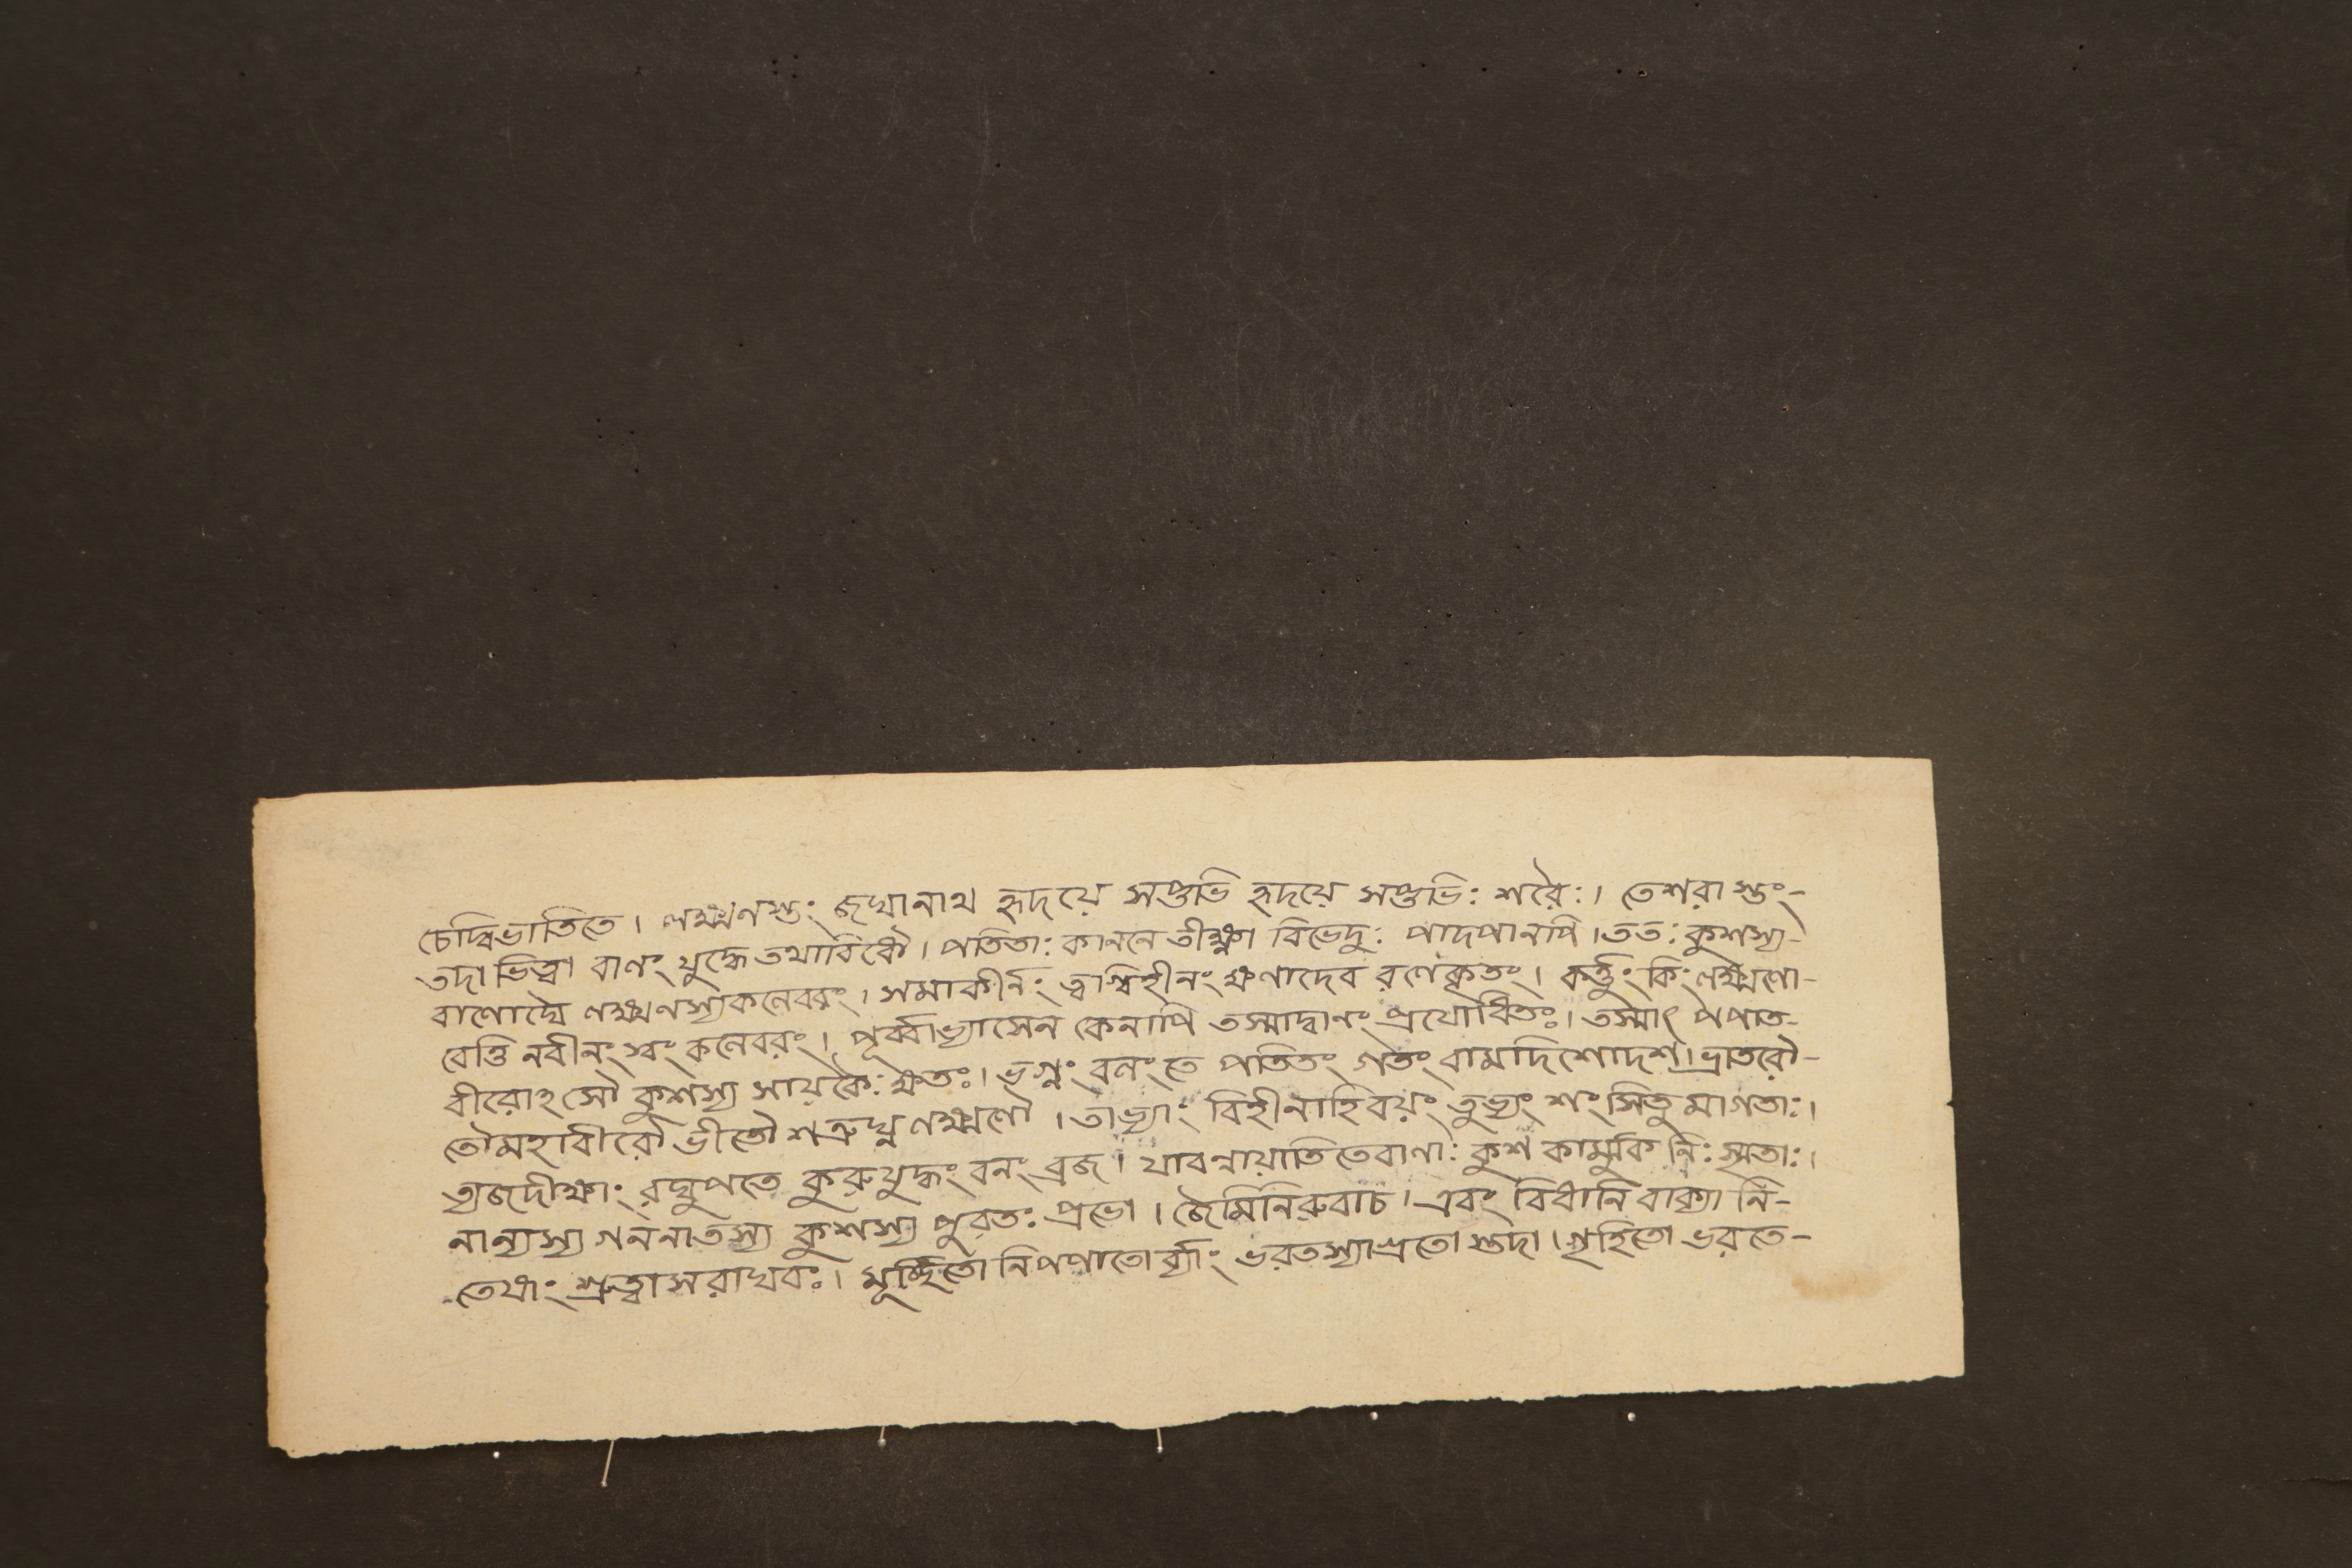 চেদ্বিভাতিতে। লক্ষ্মণস্তং জঘানাথ হৃদয়ে সপ্তভি হৃদয়ে সপ্তভিঃ শরৈঃ। তেশরাস্তং-
তদা ভিত্বা বাণং যুদ্ধে তথাবিধৌ। পতিতাঃ কাননে তীক্ষ্ণা বিভেদুঃ পাদপানপি। ততঃ কুশস্য-
বাণোঘৈ লক্ষ্মণস্যকলেবরং। সমাকীর্নং ত্বাগ্বিহীনং ক্ষণাদেব রণেকৃতং। কর্ত্তুং কিং লক্ষ্মণো-
বেত্তি নবীনং স্বং কলেবরং। পূর্ব্বাভ্যাসেন কেনাপি তস্মাদ্বাণং প্রযোধিতঃ। তস্মাৎ পপাত-
বীরোঽসৌ কুশস্য সায়কৈঃ ক্ষতঃ। ভগ্নং বলং তে পতিতং গতং বামদিশোদশ। ভ্রাতরৌ-
তৌমহাবীরৌ ভীতৌ শত্রুঘ্ন লক্ষ্মণৌ। তাভ্যাং বিহীনাহিবয়ং তুভ্যং শংসিতু মাগতাঃ।
ত্যজদীক্ষাং রঘুপতে কুরুযুদ্ধং বলং ব্রজ। যাবন্নায়াতিতেবাণাঃ কুশ কার্মুক নিঃসৃতাঃ।
নান্যস্য গননাতস্য কুশস্য পুরতঃ প্রভো। জৈমিনিরুবাচ। এবং বিধানি বাক্যা নি-
তেষাং শ্রুত্বাসরাঘবঃ। মূর্চ্ছিতো নিপপাতোর্ব্যাং ভরতস্যাগ্রতো স্তদা। গৃহিতো ভরতে-